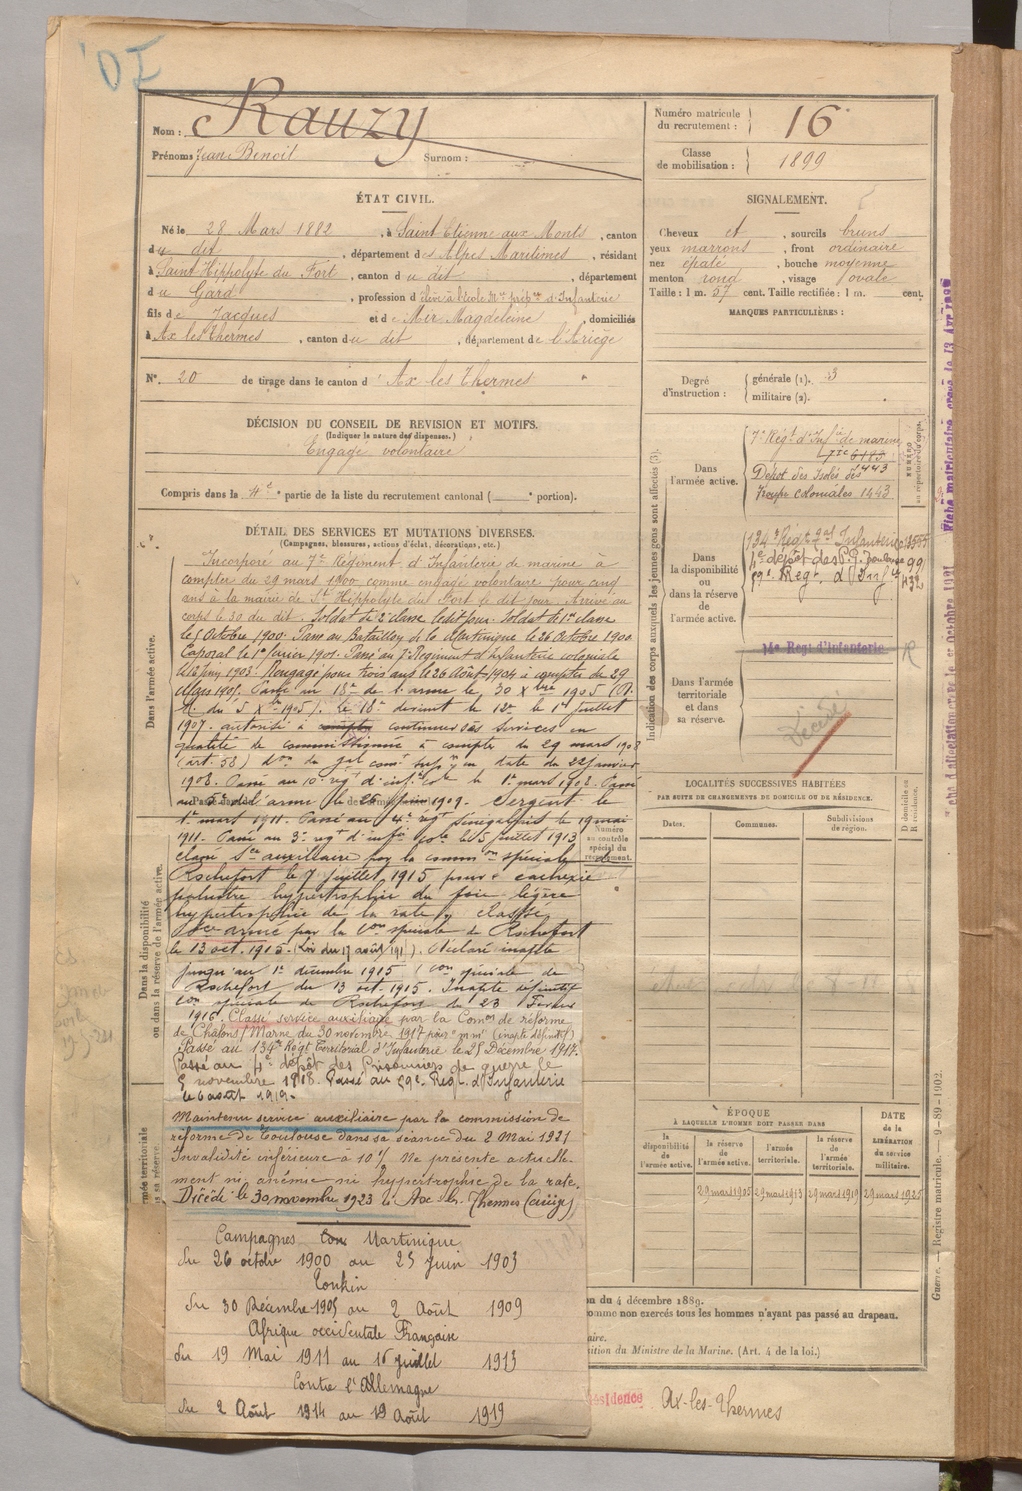 Nom : Rauzy
Prénoms Jean Benoit Surnom :
Numéro matricule du recrutement : 16
Classe de mobilisation : 1899
ÉTAT CIVIL.
Né le 28 Mars 1882, à Saint Etienne aux Monts, canton
du dit, département des Alpes Maritimes, résidant
à Saint Hippolyte du Fort, canton du dit, département
du Gard, profession d'élève à l'école Mre prépre d'Infanterie
fils de Jacques et de Mir Magdeleine, domiciliés
à Ax les thermes, canton du dit, département de l'Ariège
N° 20 de tirage dans le canton d' Ax les thermes
SIGNALEMENT.
Cheveux et, sourcils bruns
yeux marrons, front ordinaire
nez épaté, bouche moyenne
menton rond, visage ovale
Taille : 1 m. 57 cent. Taille rectifiée : 1 m. cent.
MARQUES PARTICULIÈRES :
Degré d'instruction : générale (1). 3
militaire (2).
DÉCISION DU CONSEIL DE REVISION ET MOTIFS.
(Indiquer la nature des dispenses.)
Engagé volontaire
Compris dans la 4e partie de la liste du recrutement cantonal ( portion).
DÉTAIL DES SERVICES ET MUTATIONS DIVERSES.
(Campagnes, blessures, actions d'éclat, décorations, etc.)
Dans l'armée active.
Incorporé au 7e Régiment d'Infanterie de marine à
compter du 29 mars 1900 comme engagé volontaire pour cinq
ans à la mairie de St Hippolyte du Fort le dit jour. Arrivé au
corps le 30 du dit. Soldat de 2e classe le dit jour. Soldat de 1re classe
le 5 Octobre 1900. Passé au Bataillon de la Martinique le 26 Octobre 1900
Caporal le 1er janvier 1901. Passé au 7e Régiment d'Infanterie coloniale
le 12 juin 1903. Rengagé pour trois ans le 26 Août 1904 à compter du 29
Mars 1905. Passé au 18e de l'arme le 30 Xbre 1905
du 5 Xbre 1905). Le 18e devient le 12e le 1er juillet
1907. autorisé à compter continuer ses services en
qualité de commissionné à compter du 29 mars 1908
(art. 58) don du gal comt supr en date du 22 janvier
1908. Passé au 10e régt d'infie cole le 1er mars 1908. Passé
au 5e de l'arme le 26 juin 1909. Sergent le
1er mars 1911. Passé au 4e regt Sénégalais le 19 mai
1911. Passé au 3e regt d'infie cole le 15 juillet 1913
classé Sce auxiliaire par la common spéciale de
Rochefort le 7 juillet 1915 pour cachexie
palustre hypertrophie du foie légère
hypertrophie de la rate, classé
Sce armé par la Con spéciale de Rochefort
le 13 oct. 1915 (Loi du 17 août 1915). Déclaré inapte
jusqu'au 1er décembre 1915 (Con spéciale de
Rochefort du 13 oct. 1915. Inapte définitif
Con spéciale de Rochefort du 23 Fevrier
1916. Classé service auxiliaire par la Comon de réforme
de Châlons/Marne du 30 novembre 1917 pour "mm" (inapte définitif)
Passé au 134e Régt Territorial d'Infanterie le 25 Décembre 1917.
Passé au 4e dépôt des Prisonniers de guerre le
5 novembre 1918. Passé au 59e Regt d'Infanterie
le 6 août 1919.
Maintenu service auxiliaire par la commission de
réforme de Toulouse dans sa séance du 2 Mai 1921
Invalidité inférieure à 10% Ne présente actuelle-
ment ni anémie ni hypertrophie de la rate.
Décédé le 30 novembre 1923 à Ax-les-Thermes (Ariège)
Campagnes Martinique
du 26 octobre 1900 au 25 juin 1903
Tonkin
du 30 Décembre 1905 au 2 Août 1909
Afrique occidentale Française
du 19 Mai 1911 au 16 juillet 1913
Contre l'Allemagne
du 2 Août 1914 au 19 Août 1919
Dans la disponibilité ou dans la réserve de l'armée active.
Indication des corps auxquels les jeunes gens sont affectés (3).
NUMÉRO au répertoire du corps.
Dans l'armée active.
7e Régt d'Infie de marine
6183
Dépôt des Isolés des 443
troupes coloniales. 1443
Dans la disponibilité ou dans la réserve de l'armée active.
134e Régt gal Infanterie
4e dépôt des P.G. Toulouse 99
59e Regt d'Infie 432
Dans l'armée territoriale et dans sa réserve.
14e Régt d'Infanterie R
Décédé
Numéro au contrôle spécial du recrutement.
LOCALITÉS SUCCESSIVES HABITÉES
PAR SUITE DE CHANGEMENTS DE DOMICILE OU DE RÉSIDENCE.
Dates. Communes. Subdivisions de région. D domicile ou R résidence.
ÉPOQUE
À LAQUELLE L'HOMME DOIT PASSER DANS
DATE de la LIBÉRATION du service militaire.
la disponibilité de l'armée active. la réserve de l'armée active. l'armée territoriale. la réserve de l'armée territoriale.
29 mars 1905 29 mars 1913 29 mars 1919 29 mars 1925
on du 4 décembre 1889.
comme non exercés tous les hommes n'ayant pas passé au drapeau.
aire.
sition du Ministre de la Marine. (Art. 4 de la loi.)
Résidence Ax-les-Thermes
Guerre. — Registre matricule. 9-89-1902.